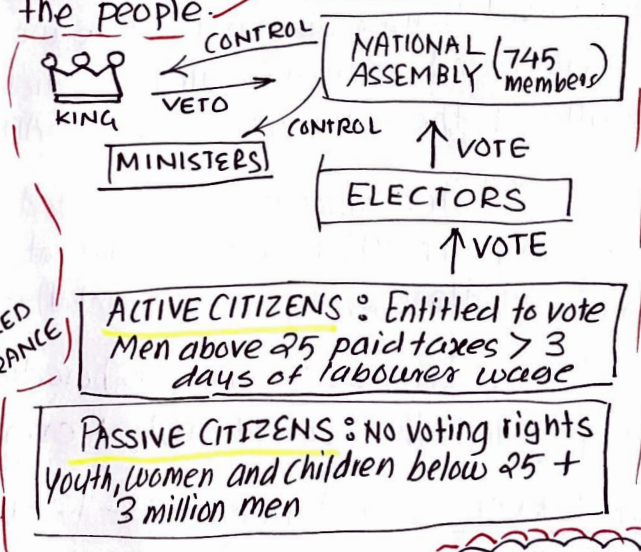 the people.
CONTROL
NATIONAL
ASSEMBLY (745 members)
KING
VETO
CONTROL
MINISTERS
VOTE
ELECTORS
VOTE
ACTIVE CITIZENS : Entitled to vote
Men above 25 paid taxes > 3
days of labourer wage
PASSIVE CITIZENS : No voting rights
Youth, women and children below 25 +
3 million men